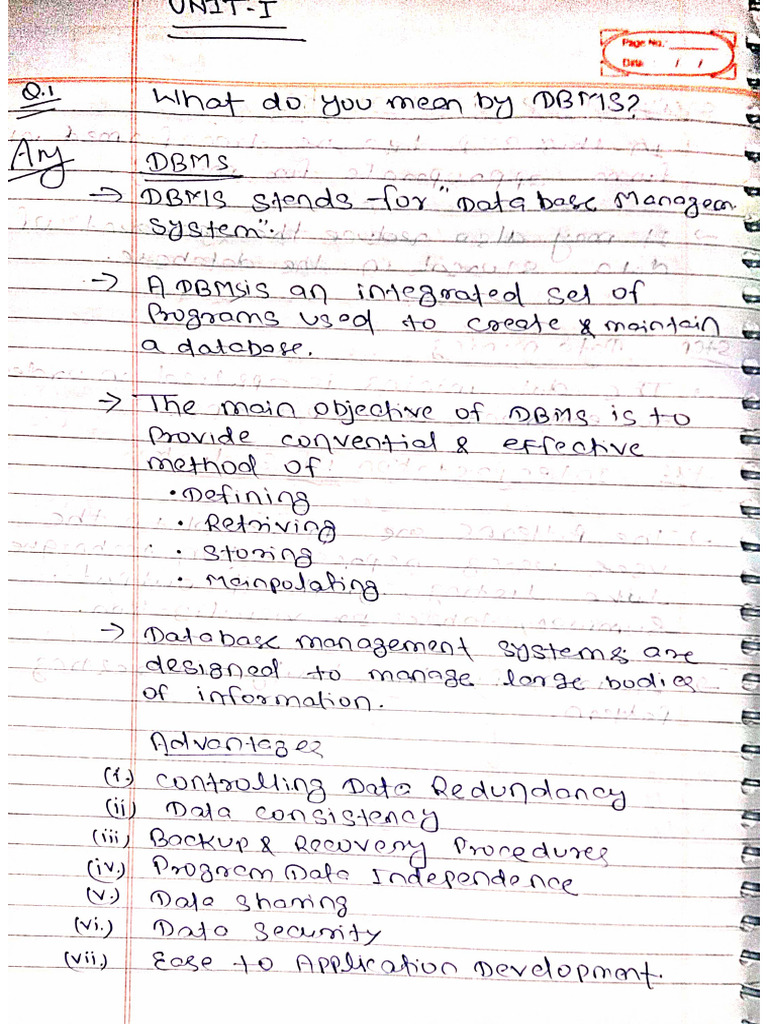 UNIT-I
Page No.:
Date / /
Q.1 What do you mean by DBMS?
Ans DBMS
→ DBMS stends for "Database Managem
System".
→ A DBMS is an integrated set of
Programs used to create & maintain
a database.
→ The main objective of DBMS is to
Provide convential & effective
method of
• Defining
• Retriving
• Storing
• Mainpolating
→ Database management systems are
designed to manage large bodies
of information.
Advantages
(i.) Controlling Data Redundancy
(ii) Data consistency
(iii) Backup & Recovery Procedures
(iv.) Program Data Independence
(v.) Data Sharing
(vi.) Data Security
(vii.) Ease to Application Development.